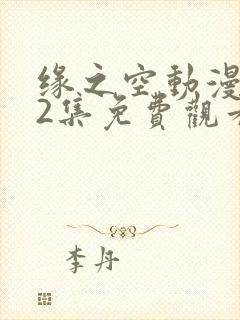 緣之空動漫
2集免費觀看
李丹